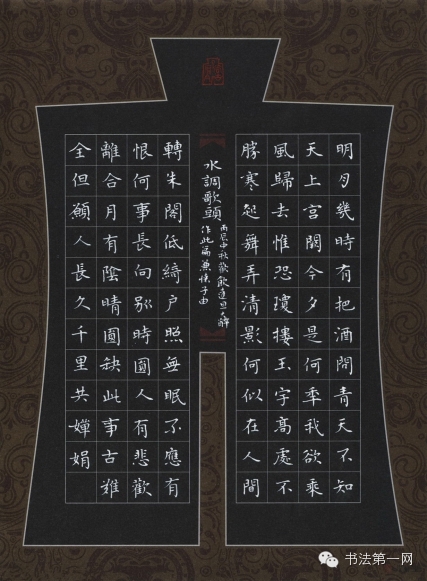 明月幾時有把酒問青天不知
天上宮闕今夕是何秊我欲乘
風歸去惟恐瓊樓玉宇高處不
勝寒起舞弄清影何似在人間
水調歌頭
丙辰中秋歡飲達旦大醉
作此篇兼懷子由
轉朱閣低綺戶照無眠不應有
恨何事長向別時圓人有悲歡
離合月有陰晴圓缺此事古難
全但願人長久千里共嬋娟
书法第一网